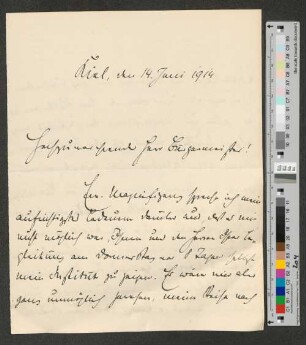 Kiel, den 14. Juni 1914
Hochzuverehrender Herr Bürgermeister!
Ew. Magnifizenz spreche ich mein
aufrichtigstes Bedauern darüber aus, daß es mir
nicht möglich war, Ihnen und den Herren Ihrer Be-
gleitung am Donnerstag
mein Institut zu zeigen. Es wäre mir aber
ganz unmöglich gewesen, meine Reise nach